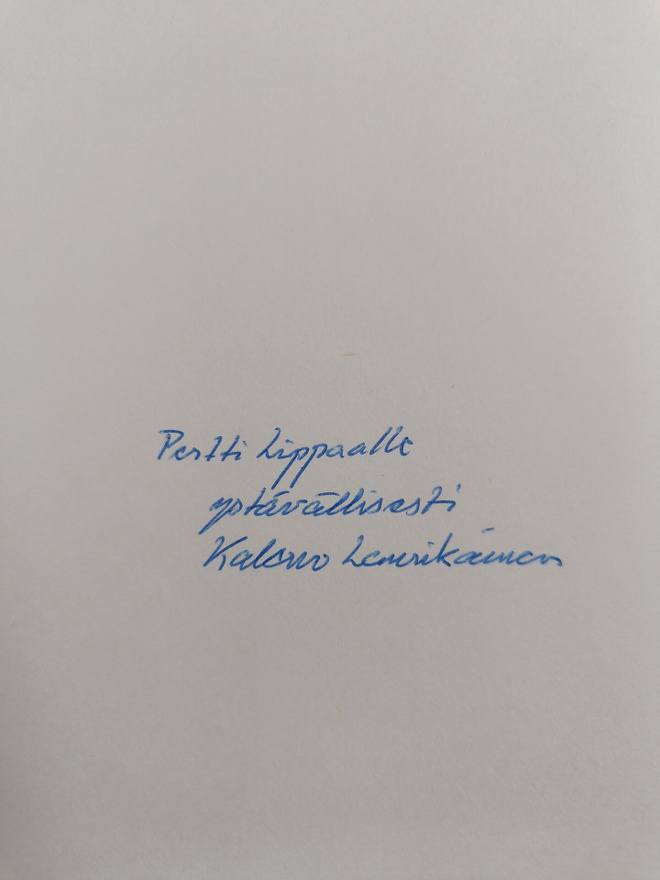 Pertti Lippaalle
ystävällisesti
Kalervo Laurikainen